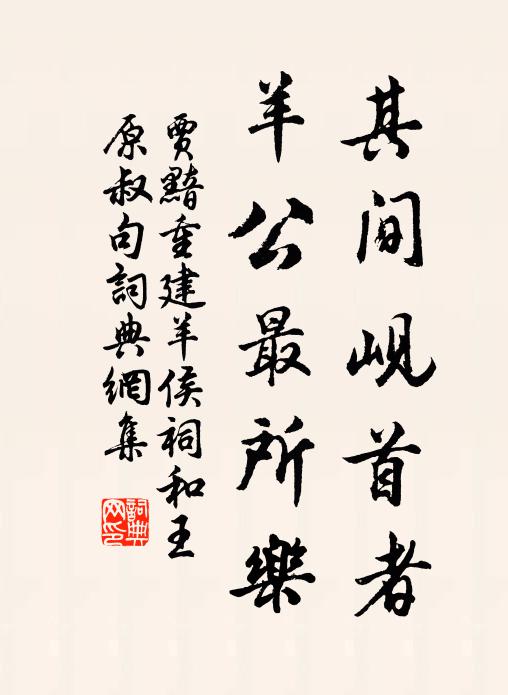 其间岘首者
羊公最所樂
賈黯重建羊侯祠和王
原叔句詞典網集
詞典网印